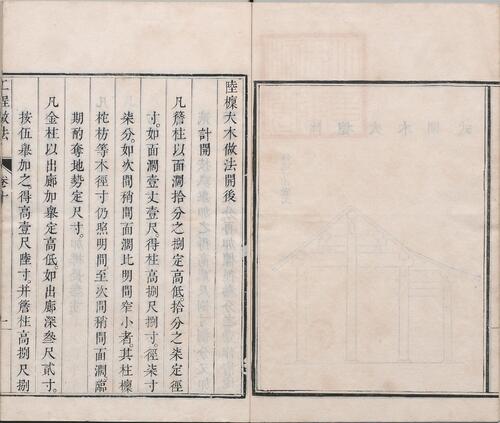 陸檁大木做法開後
計開
凡簷柱以面濶拾分之捌定髙低。拾分之柒定徑
寸。如面濶壹丈壹尺。得柱髙捌尺捌寸。徑柒寸
柒分。如次間稍間面濶比明間窄小者。其柱檁
柁枋等木徑寸仍照明間。至次間稍間面濶。臨
期酌奪地勢定尺寸。
凡金柱以出廊加舉定髙低。如出廊深叁尺貳寸。
按伍舉加之。得髙壹尺陸寸。并簷柱髙捌尺捌
工程做法
卷十